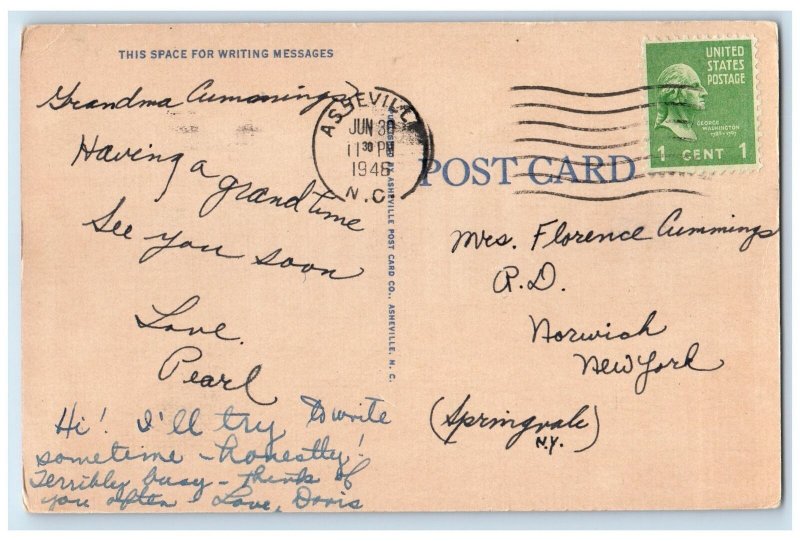 THIS SPACE FOR WRITING MESSAGES
Grandma Cummings,
Having a grand time
See you soon
Love.
Pearl
Hi! I'll try to write
sometime - honestly!
Terribly busy - think of
you often - Love, Doris
ASHEVILLE
JUN 30
11 30 PM
1946
N.C.
PUBLISHED BY ASHEVILLE POST CARD CO., ASHEVILLE, N. C.
UNITED
STATES
POSTAGE
GEORGE
WASHINGTON
1 CENT 1
POST CARD
Mrs. Florence Cummings
R.D.
Norwich
New York
(Springvale)
N.Y.